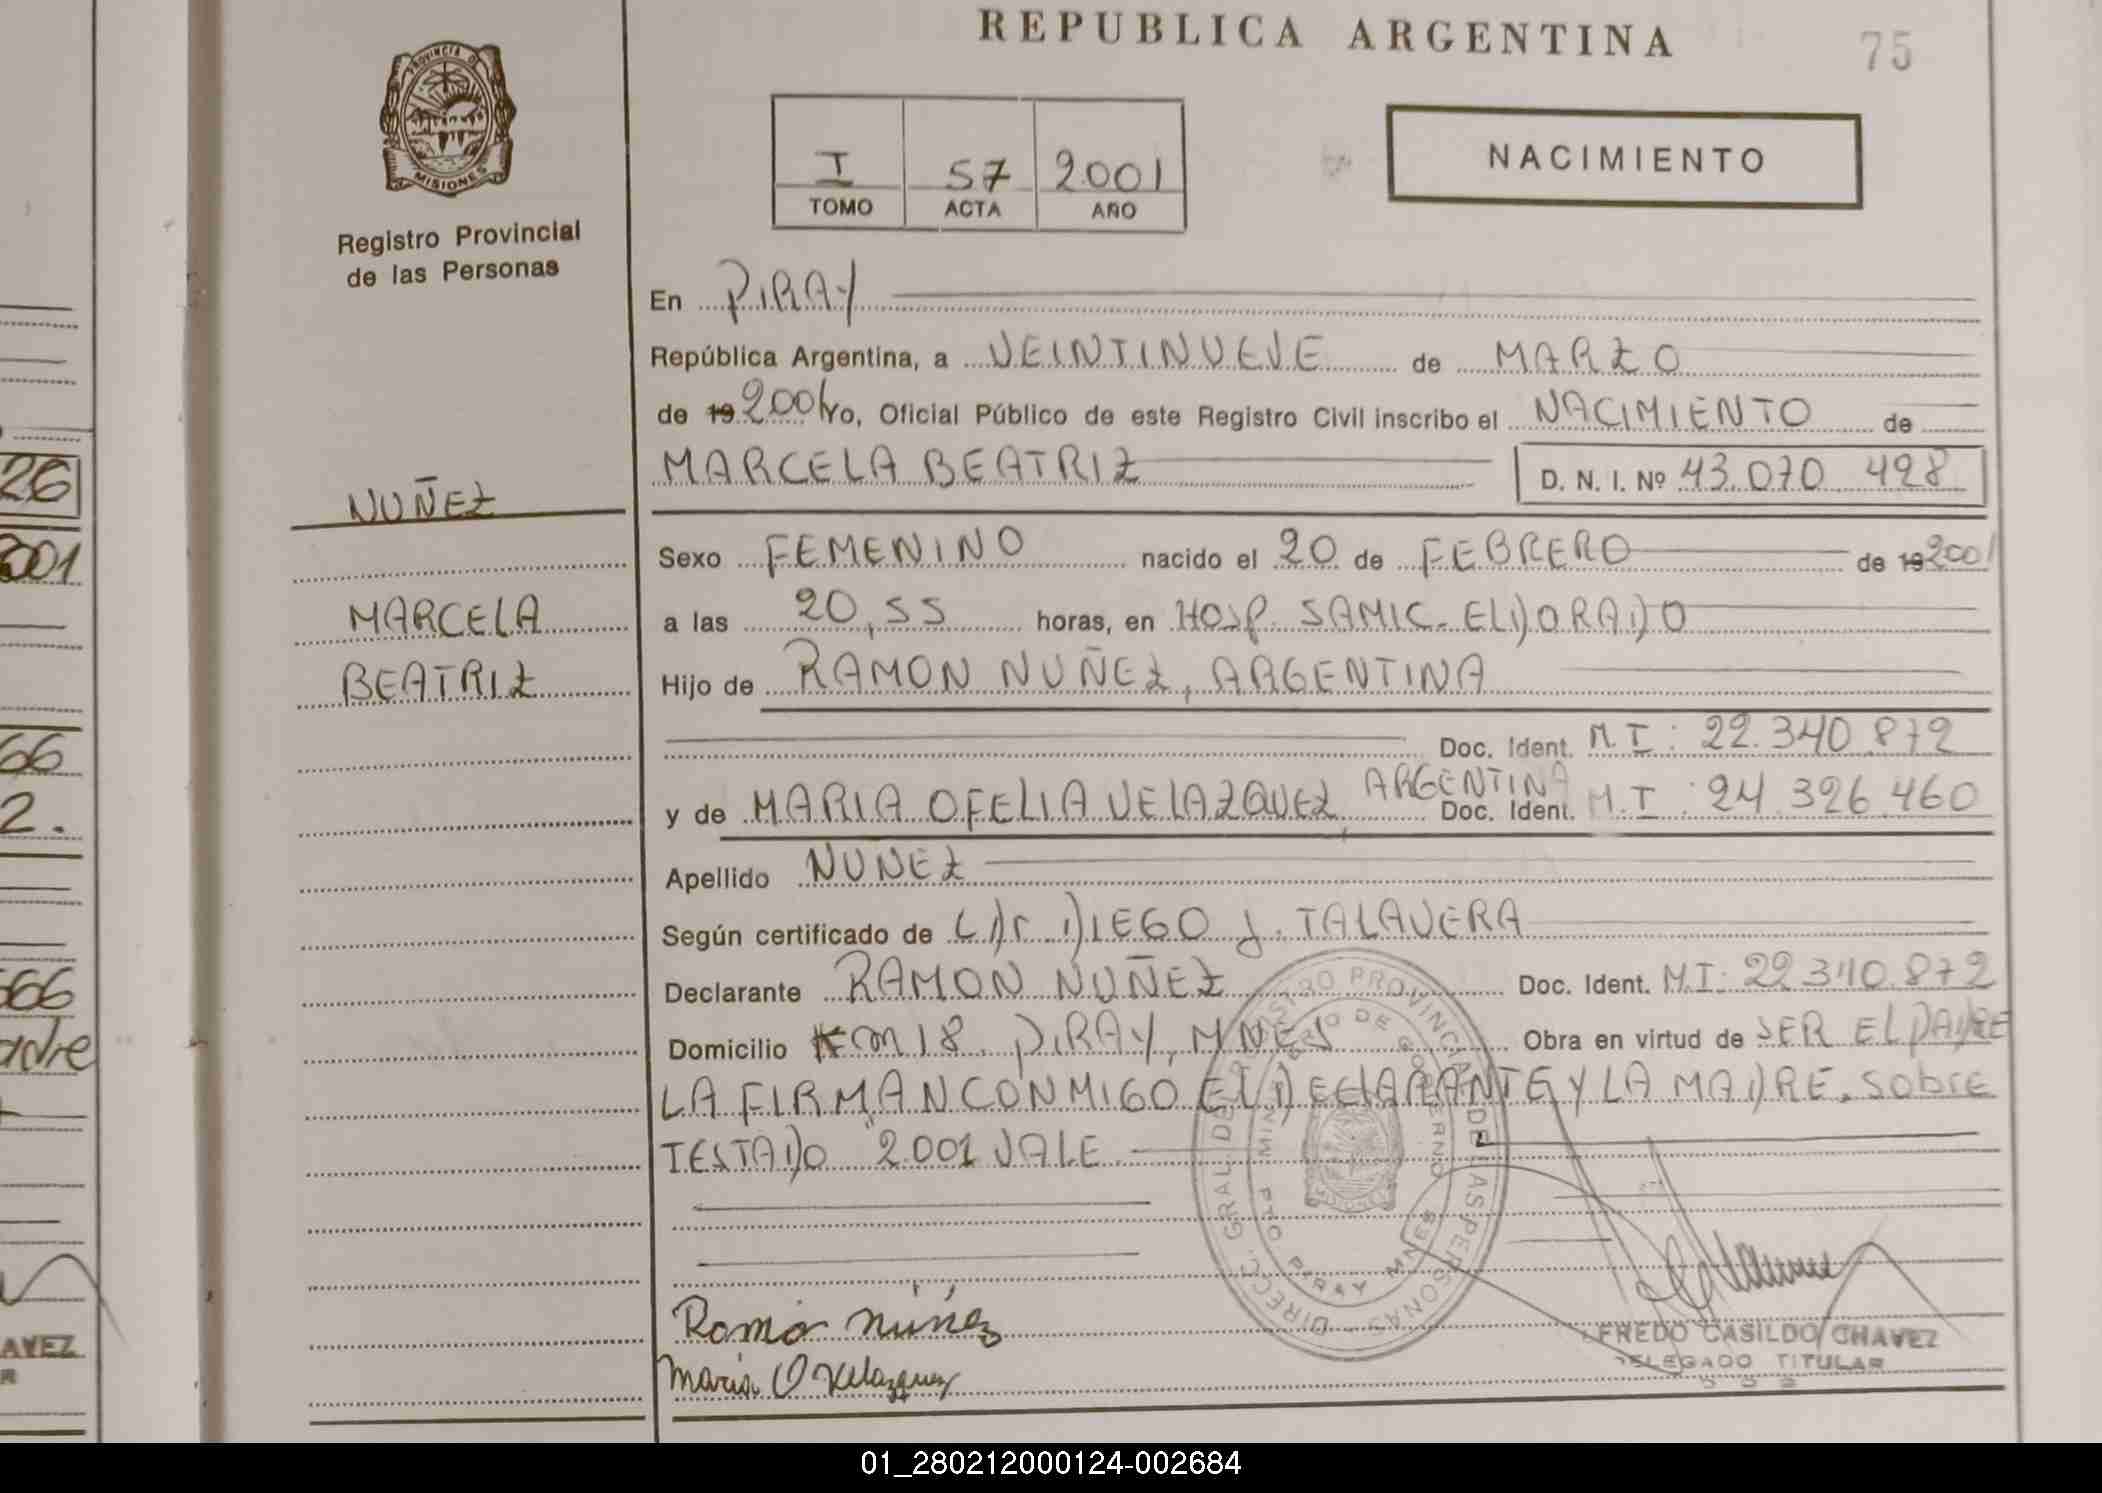 REPUBLICA ARGENTINA
75
PROVINCIA D
MISIONES
Registro Provincial
de las Personas
I 57 2001
TOMO ACTA AÑO
NACIMIENTO
En PIRAY
República Argentina, a VEINTINUEVE de MARZO
de 19 2001 yo, Oficial Público de este Registro Civil inscribo el NACIMIENTO de
MARCELA BEATRIZ D. N. I. Nº 43.070 498
NUÑEZ
Sexo FEMENINO nacido el 20 de FEBRERO de 19 2001
MARCELA
a las 20,55 horas, en HOSP. SAMIC- ELDORADO
BEATRIZ
Hijo de RAMON NUÑEZ, ARGENTINA
Doc. Ident. M.I: 22.340.872
y de MARIA OFELIA VELAZQUEZ, ARGENTINA Doc. Ident. M.I: 24.326.460
Apellido NUNEZ
Según certificado de DIEGO J. TALAVERA
Declarante RAMON NUÑEZ Doc. Ident. M.I: 22.340.872
Domicilio Km 18. PIRAY, MNES Obra en virtud de SER EL PADRE
LA FIRMAN CONMIGO EL DECLARANTE Y LA MADRE. Sobre
TESTADO "2.001 VALE
DIRECC. GRAL. DE REGISTRO PROVINCIAL DE LAS PERSONAS
MINISTERIO DE GOBIERNO
PTO PIRAY MNES
Ramón Núñez
Maria O Velazquez
FREDO CASILDO CHAVEZ
DELEGADO TITULAR
26
2001
66
2.
566
adre
AVEZ
R
01_280212000124-002684